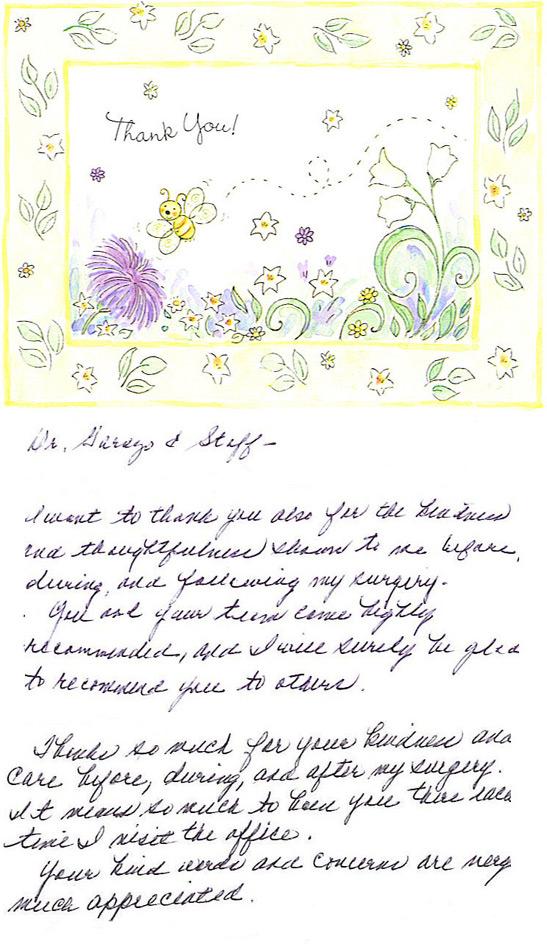 Thank You!
Dr. & Staff-
I want to thank you also for the kindness
and thoughtfulness shown to me before,
during, and following my surgery.
You and your team come highly
recommended, and I will surely be glad
to recommend you to others.
Thanks so much for your kindness and
care before, during, and after my surgery.
It means so much to have you there each
time I visit the office.
Your kind words and concerns are very
much appreciated.